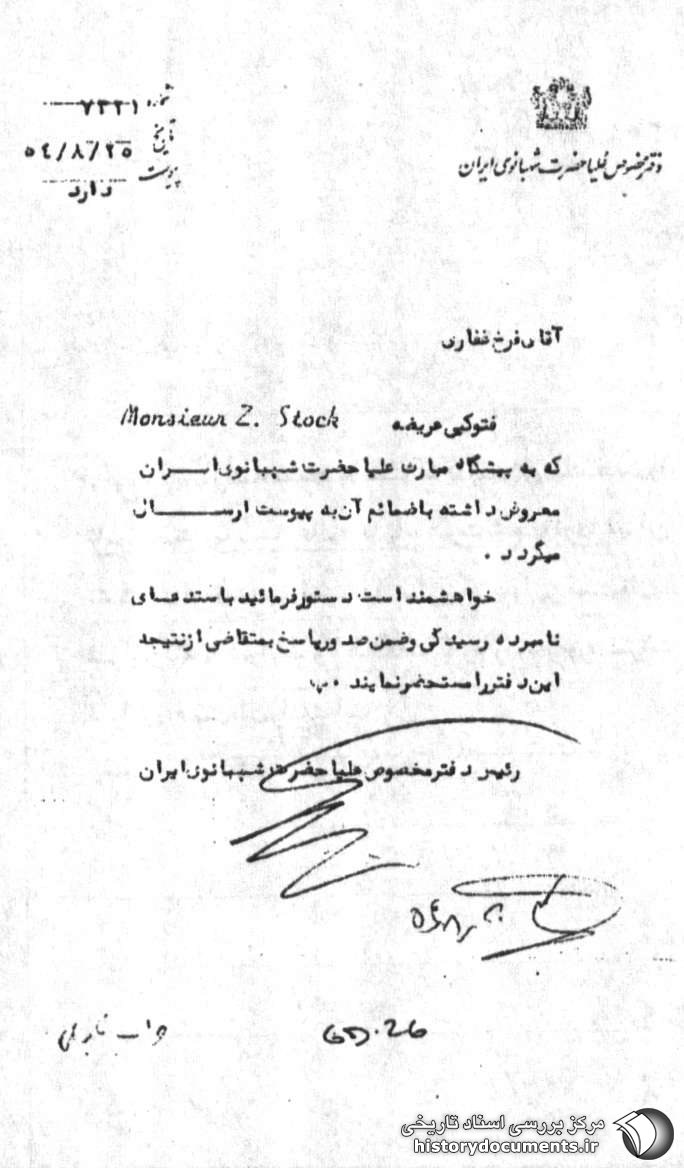 شماره ۷۳۳۱
تاریخ ۵٤/۸/۲۵
پیوست دارد
دفتر مخصوص علیاحضرت شهبانوی ایران
آقای فرخ غفاری
فتوکپی عریضه Monsieur Z. Stock
که به پیشگاه مبارک علیاحضرت شهبانوی ایران
معروض داشته با ضمائم آن به پیوست ارسال
میگردد .
خواهشمند است دستور فرمائید باستدعای
نامبرده رسیدگی وضمن صدور پاسخ بمتقاضی از نتیجه
این دفتر را مستحضر نمایند .
رئیس دفتر مخصوص علیاحضرت شهبانوی ایران
26
مرکز بررسی اسناد تاریخی
historydocuments.ir